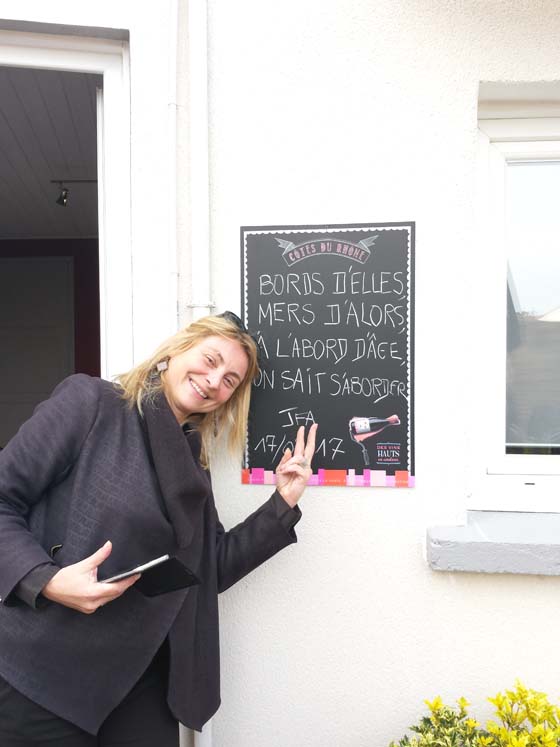 CÔTES DU RHÔNE
BORDS D'ELLES,
MERS D'ALORS,
À L'ABORD D'ÂGE,
ON SAIT S'ABORDER
JFA
17/ 17
DES VINS
HAUTS
EN COULEURS